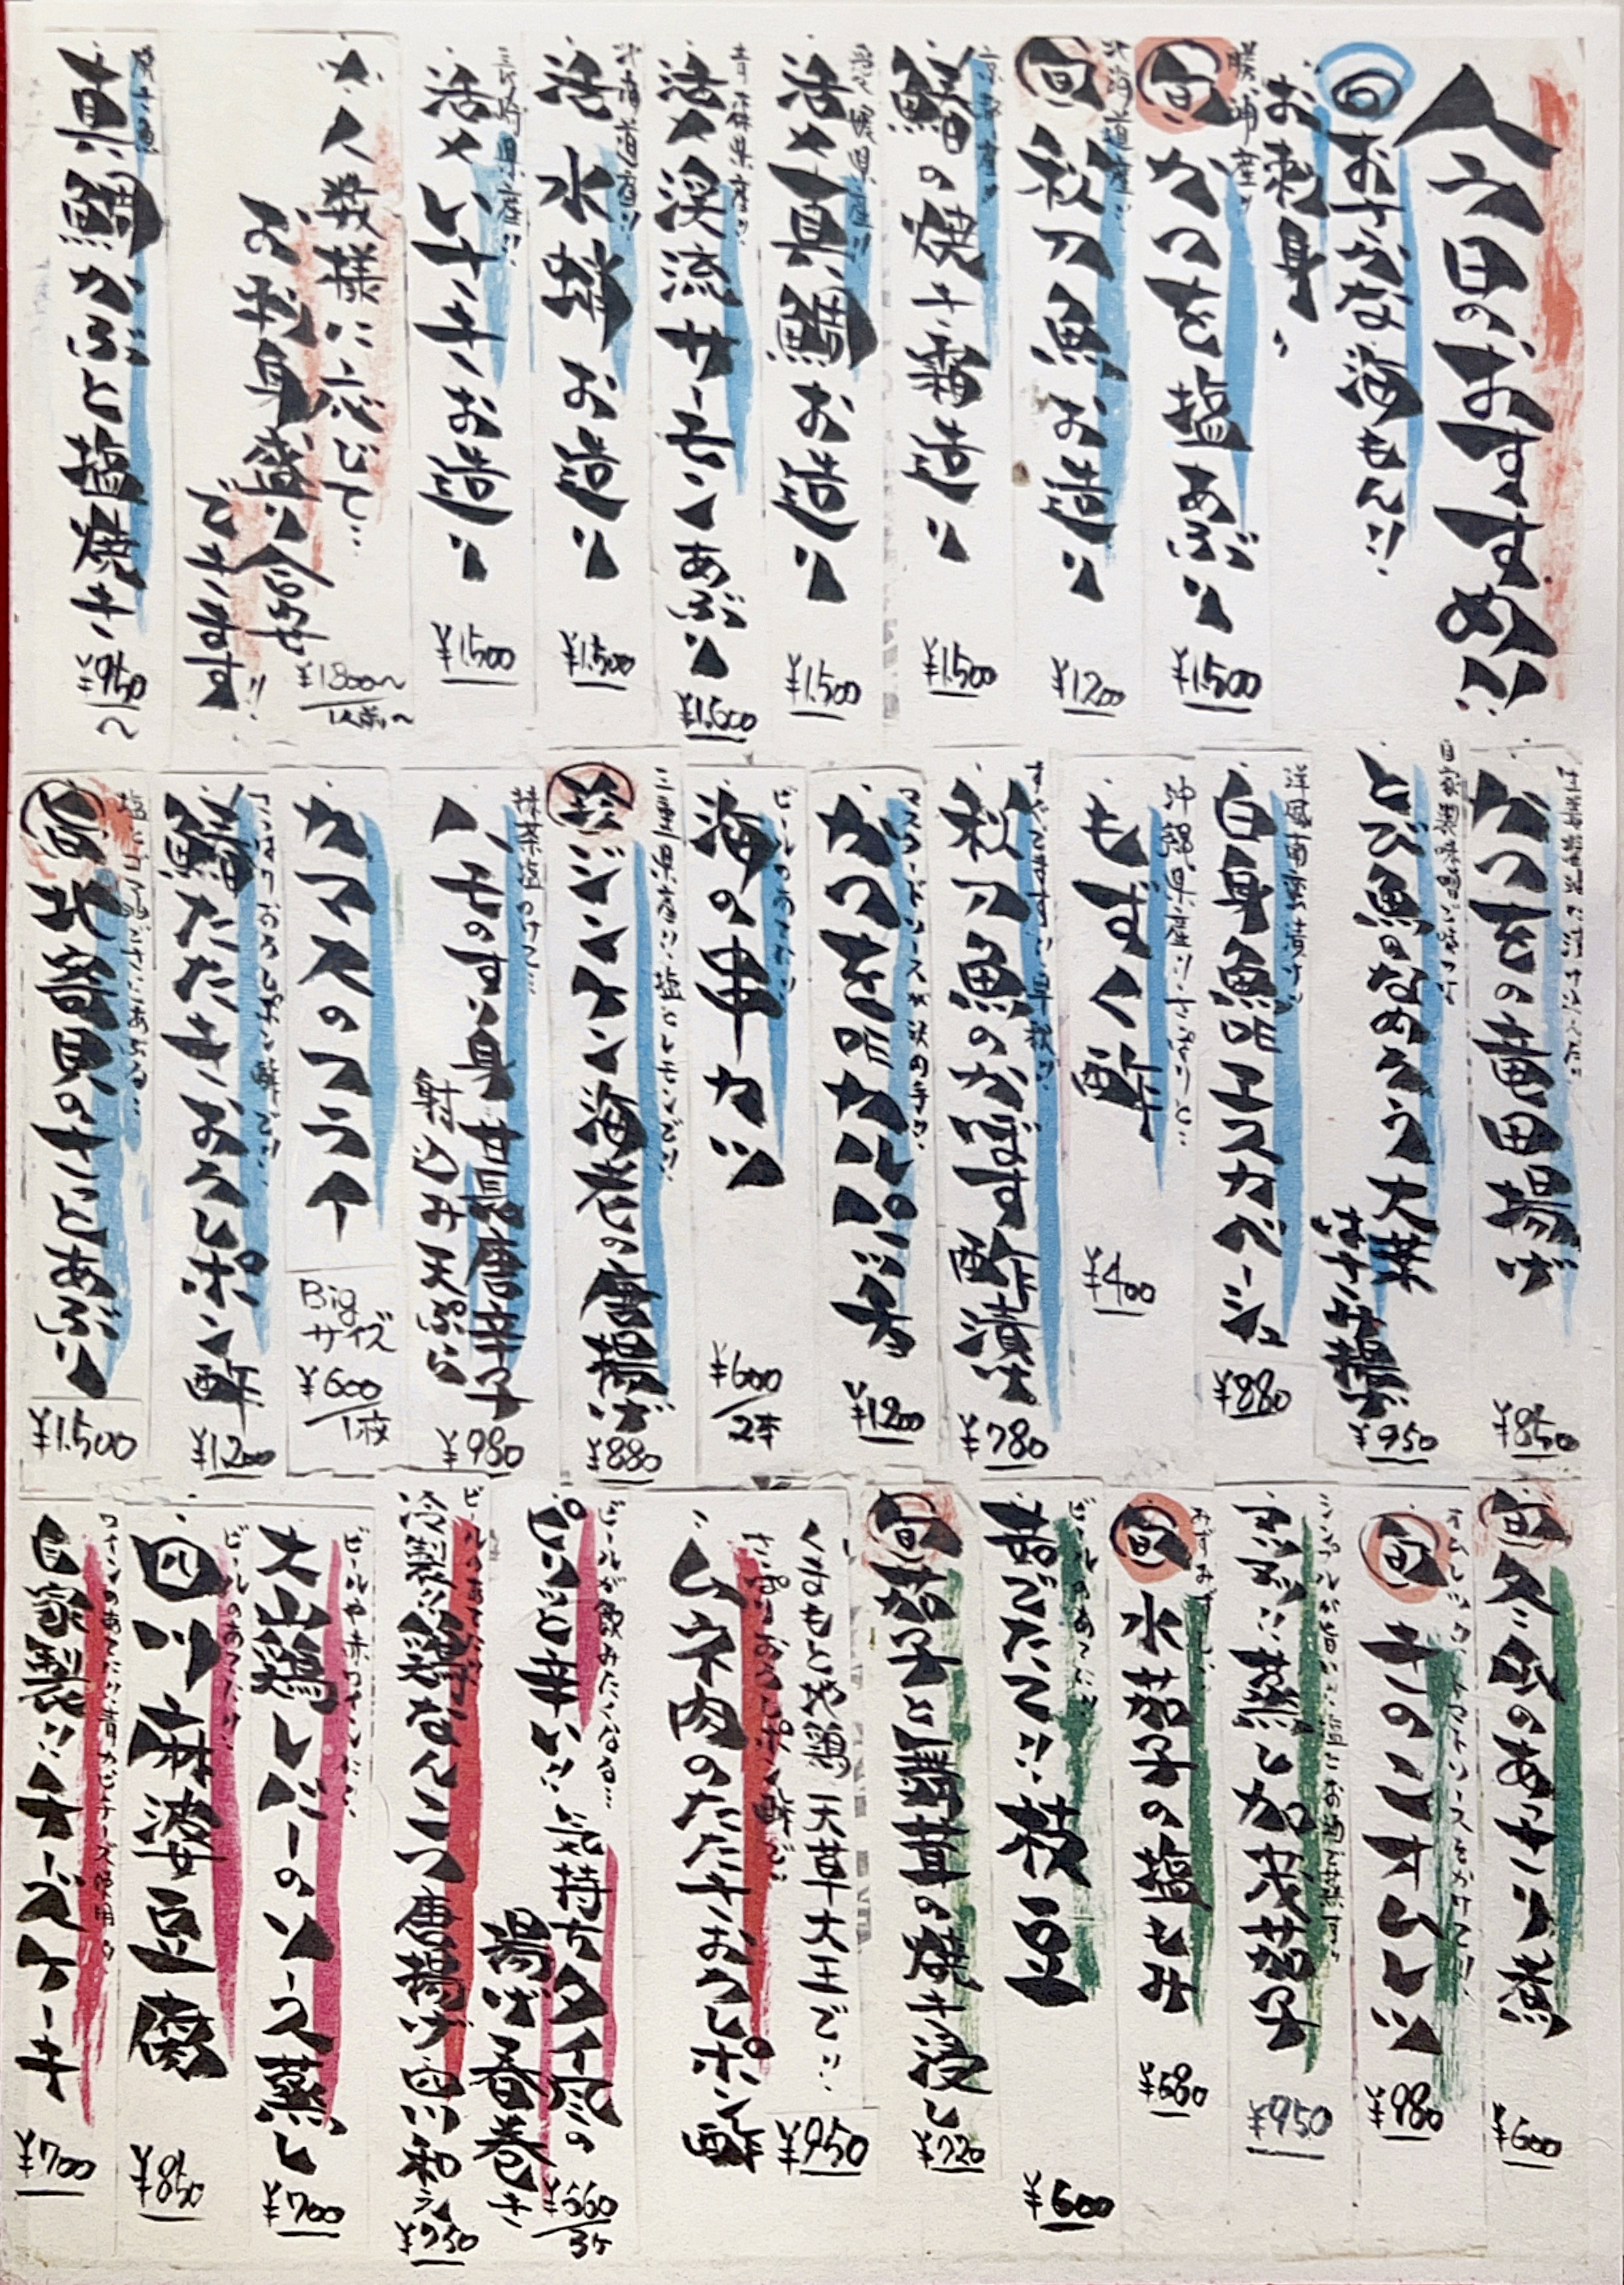 今日のおすすめ!!
旬 お手がな海もん!!
お刺身、
勝浦産!!
旬 かつを塩あぶり ¥1,500
北海道産!!
旬 秋刀魚お造り ¥1,200
京都産!!
鰆の焼き霜造り ¥1,500
愛媛県産!!
活〆真鯛お造り ¥1,500
青森県産!!
活〆渓流サーモンあぶり ¥1,500
北海道産!!
活 水蛸お造り ¥1,500
長崎県産!!
活〆いさきお造り ¥1,500
人数様に応じて…
お刺身盛り合わせ
できます!!
¥1,800〜/1人前〜
真鯛かぶと塩焼き ¥950〜
かつをの竜田揚げ ¥850
とび魚のなめろう大葉
はさみ揚げ ¥950
洋風南蛮漬け!!
白身魚のエスカベーシュ ¥880
沖縄県産!!さっぱりと…
もずく酢 ¥400
秋刀魚のかぼす酢漬け ¥780
マスタードソースが決め手!!
かつをのカルパッチョ ¥1,200
ビールのあてに!!
海の串カツ ¥600/2本
三重県産!!塩とレモンで!!
珍 ジンケン海老の唐揚げ ¥880
抹茶塩つけて…
ハモのすり身 甘長唐辛子
射込み天ぷら ¥980
カマスのフライ Bigサイズ ¥600/1枚
鰆たたきおろしポン酢 ¥1,200
旨 北寄貝のさっとあぶり ¥1,500
旬 冬瓜のあっさり煮 ¥600
旬 きのこオムレツ ¥980
アツアツ!!蒸し加茂茄子 ¥950
旬 水茄子の塩もみ ¥680
ビールのあてに!!
茹でたて!!枝豆 ¥600
旬 茄子と万願寺の焼き浸し ¥720
くまもと地鶏 天草大王で!!
さっぱりおろしポン酢で
ムネ肉のたたきおろしポン酢 ¥950
ビールが飲みたくなる…
ピリッと辛い!!気持ちタイ風の
揚げ春巻き ¥660/3ケ
ビールのあてに!!
冷製!!鶏なんこつ唐揚げ 四川和え ¥750
ビールや赤ワインに!!
大山鶏レバーのソース蒸し ¥700
ビールのあてに!!
四川麻婆豆腐 ¥850
ワインのあてに!!青カビチーズ使用
自家製!!チーズケーキ ¥700